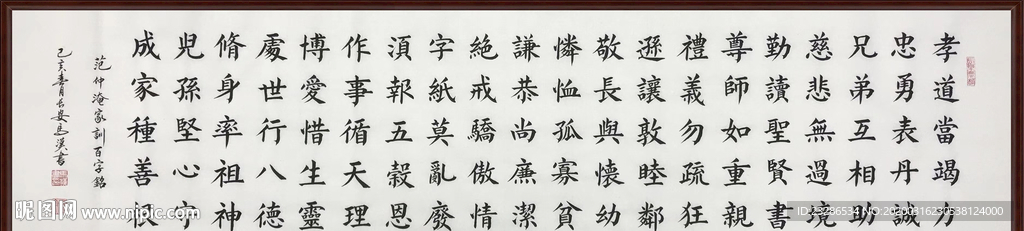 孝道當竭力
忠勇表丹誠
兄弟互相助
慈悲無過境
勤讀聖賢書
尊師如重親
禮義勿疏狂
遜讓敦睦鄰
敬長與懷幼
憐恤孤寡貧
謙恭尚廉潔
絶戒驕傲情
字紙莫亂廢
須報五穀恩
作事循天理
博愛惜生靈
處世行八德
脩身率祖神
兒孫堅心守
成家種善根
范仲淹家訓百字銘
己亥春月於長安
昵图网 www.nipic.com
ID:23286534 NO:20200316230538124000